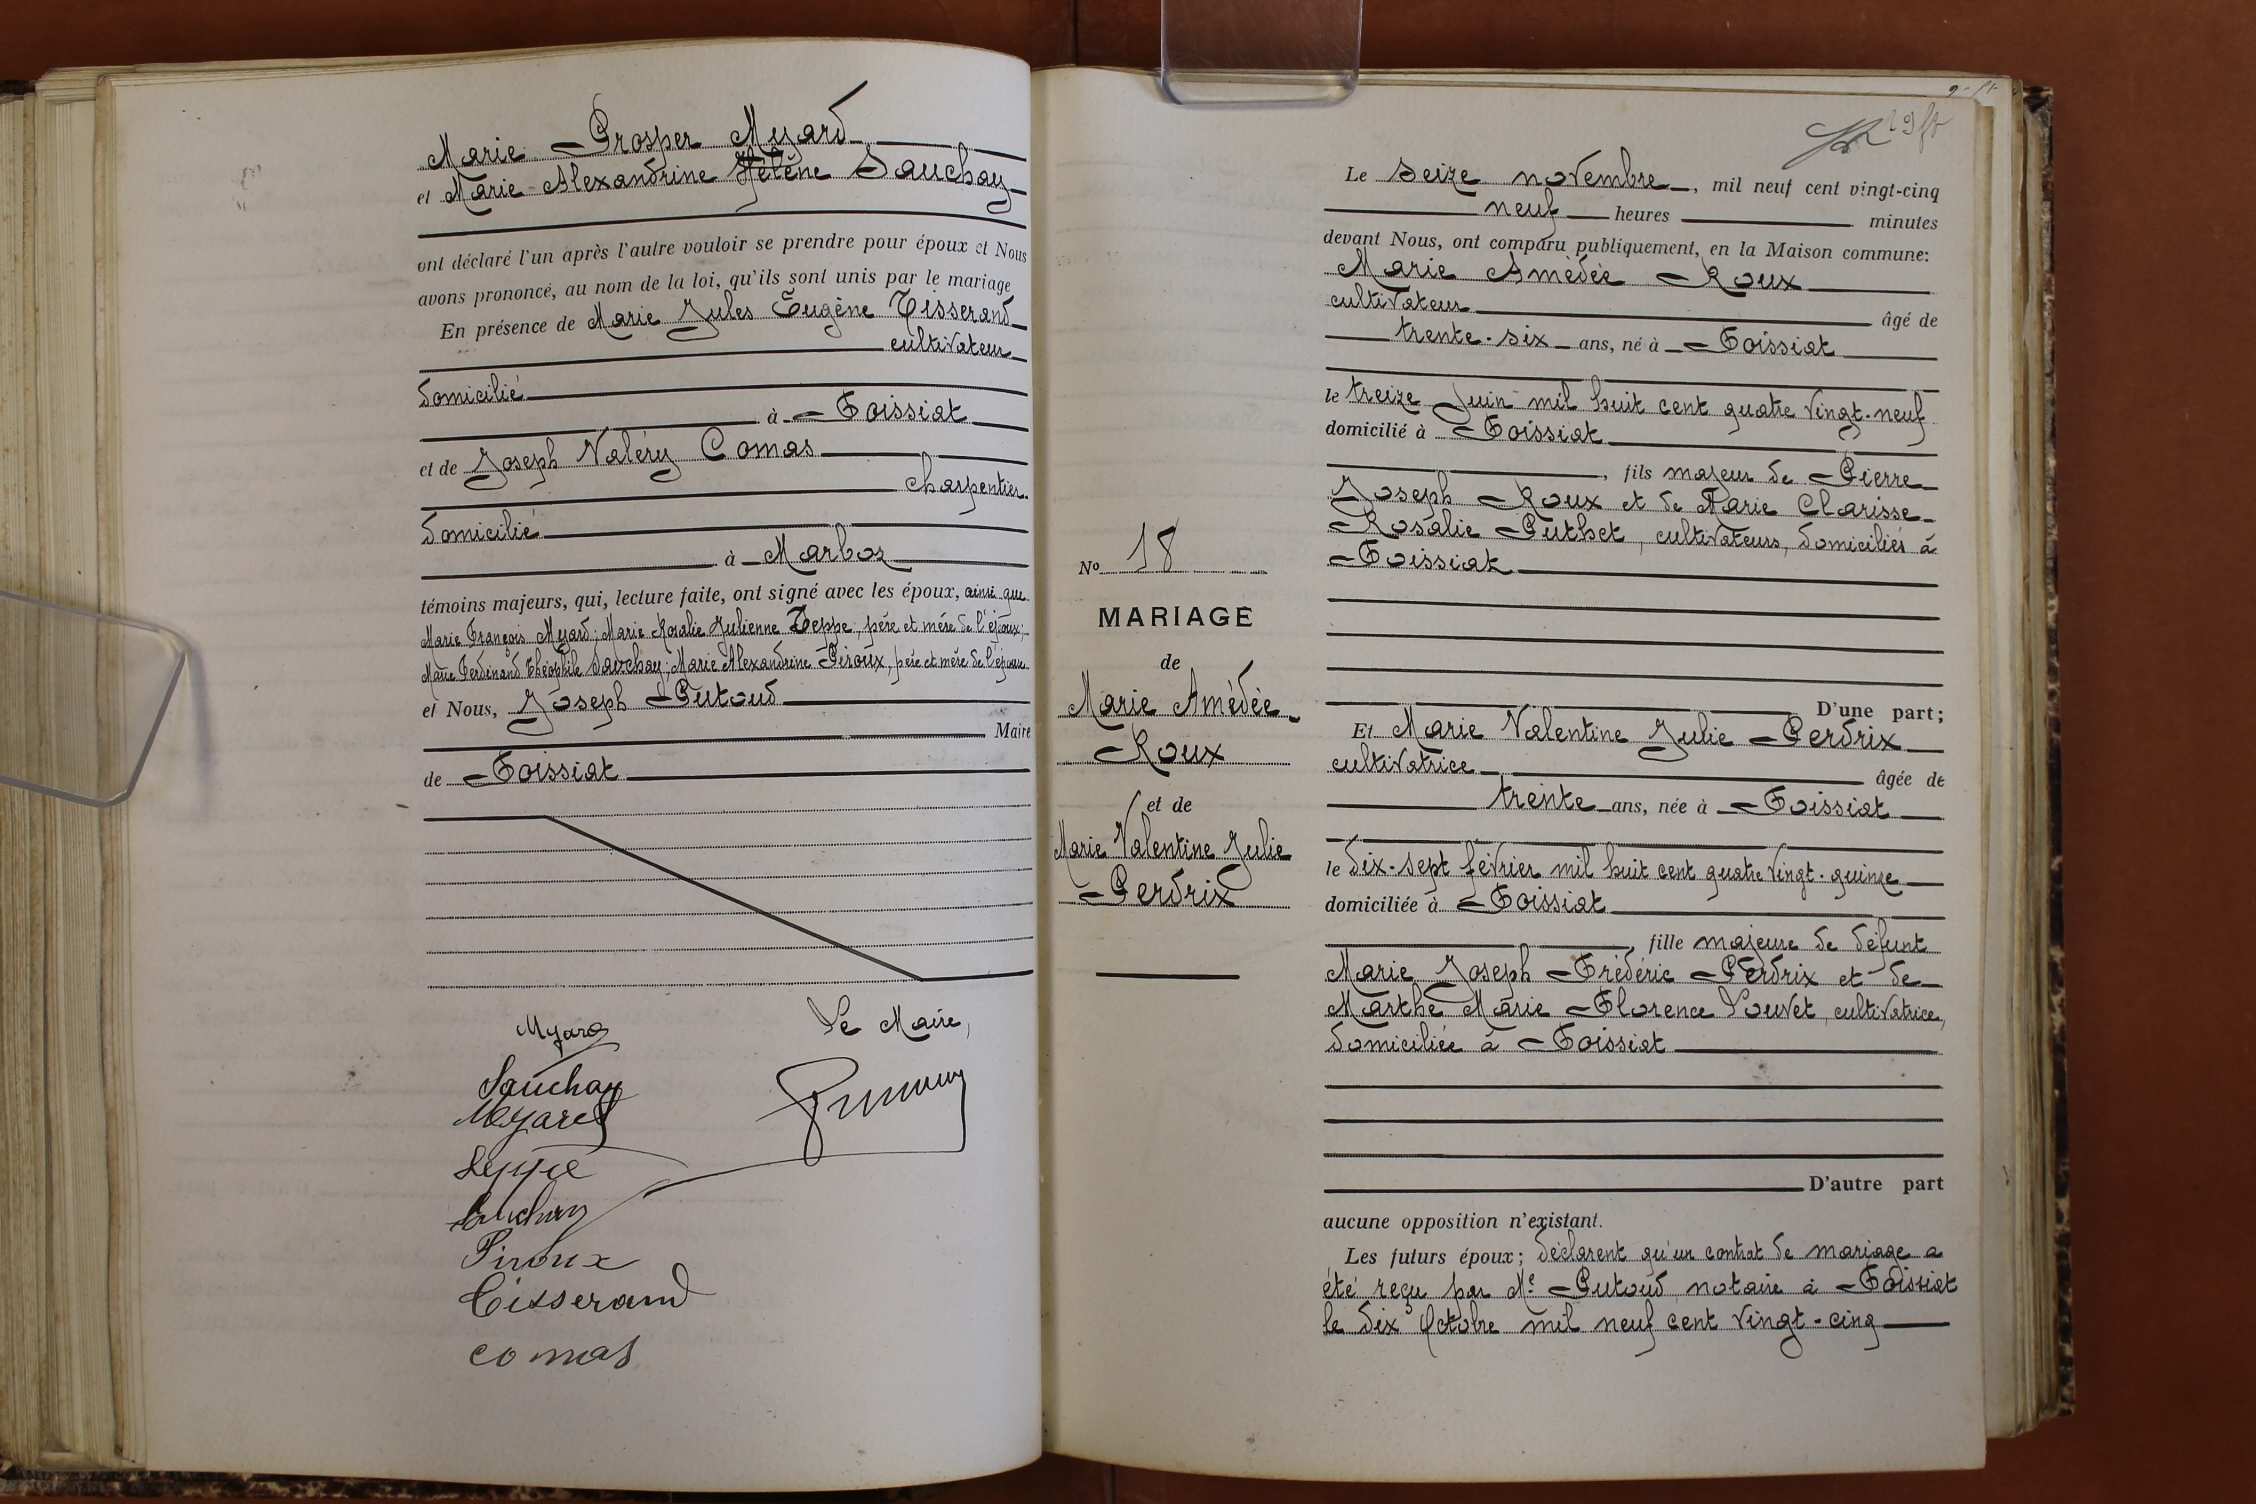 Marie Prosper Myard
et Marie Alexandrine Hélène Sauchay
ont déclaré l'un après l'autre vouloir se prendre pour époux et Nous
avons prononcé, au nom de la loi, qu'ils sont unis par le mariage
En présence de Marie Jules Eugène Tisserand
cultivateur
domicilié
à Foissiat
et de Joseph Valéry Comas
charpentier
domicilié
à Marboz
témoins majeurs, qui, lecture faite, ont signé avec les époux, ainsi que
Marie François Myard; Marie Rosalie Julienne Teppe, père et mère de l'époux;
Marie Ferdinand Théophile Sauchay; Marie Alexandrine Piroux, père et mère de l'épouse
et Nous, Joseph Putoud
Maire
de Foissiat
Myard
Le Maire,
Sauchay
Myard
Teppe
Sauchay
Piroux
Tisserand
comas
19
Le seize novembre, mil neuf cent vingt-cinq
neuf heures minutes
devant Nous, ont comparu publiquement, en la Maison commune:
Marie Amédée Roux
cultivateur âgé de
trente-six ans, né à Foissiat
le treize Juin mil huit cent quatre vingt-neuf
domicilié à Foissiat
, fils majeur de Pierre
Joseph Roux et de Marie Clarisse
Rosalie Puthet, cultivateurs, domiciliés à
Foissiat
No 18
MARIAGE
de
Marie Amédée
Roux
et de
Marie Valentine Julie
Perdrix
D'une part;
Et Marie Valentine Julie Perdrix
cultivatrice âgée de
trente ans, née à Foissiat
le dix-sept février mil huit cent quatre vingt-quinze
domiciliée à Foissiat
, fille majeure de défunt
Marie Joseph Frédéric Perdrix et de
Marthe Marie Florence Louvet, cultivatrice,
domiciliée à Foissiat
D'autre part
aucune opposition n'existant.
Les futurs époux; déclarent qu'un contrat de mariage a
été reçu par Me Putoud notaire à Foissiat
le dix Octobre mil neuf cent vingt-cinq